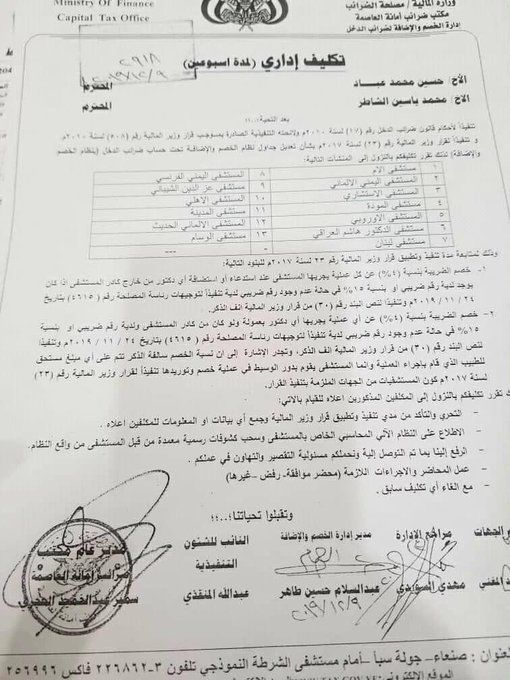 Ministry Of Finance
Capital Tax Office
وزارة المالية / مصلحة الضرائب
مكتب ضرائب أمانة العاصمة
إدارة الخصم والإضافة لضرائب الدخل
٢٩١٨
٢٠١٩/١٢/٩
تكليف إداري (لمدة اسبوعين)
الأخ/ حسين محمد عباد المحترم
الاخ/ محمد ياسين الشاطر المحترم
بعد التحية ،،،
تنفيذاً لأحكام قانون ضرائب الدخل رقم (١٧) لسنة ٢٠١٠م ولائحته التنفيذية الصادرة بموجب قرار وزير المالية رقم (٥٠٨) لسنة ٢٠١٠م.
و تنفيذاً لقرار وزير المالية رقم (٢٣) لسنة ٢٠١٧م بشأن تعديل جداول نظام الخصم والإضافة تحت حساب ضرائب الدخل (بنظام الخصم
والإضافة) لذلك تقرر تكليفكم بالنزول إلى المنشآت التالية:
١ مستشفى الام ٨ المستشفى اليمني الفرنسي
٢ المستشفى اليمني الالماني ٩ مستشفى عز الدين الشيباني
٣ المستشفى الاستشاري ١٠ المستشفى الاهلي
٤ مستشفى المودة ١١ مستشفى المدينة
٥ المستشفى الاوروبي ١٢ المستشفى الالماني الحديث
٦ مستشفى الدكتور هاشم العراقي ١٣ مستشفى الوسام
٧ مستشفى لبنان --- ---
وذلك لمتابعة مدة تنفيذ وتطبيق قرار وزير المالية رقم ٢٣ لسنة ٢٠١٧م للبنود التالية:
١- خصم الضريبة بنسبة (٤%) عن كل عملية يجريها المستشفى عند استدعاء أو استضافة أي دكتور من خارج كادر المستشفى اذا كان
يوجد لدية رقم ضريبي او بنسبة ١٥% في حالة عدم وجود رقم ضريبي لدية تنفيذاً لتوجيهات رئاسة المصلحة رقم (٤٦١٥) بتاريخ
٢٤ / ١١ / ٢٠١٩م وتنفيذا لنص البند رقم (٣٠) من قرار وزير المالية انف الذكر.
٢- خصم الضريبة بنسبة (٤%) عن أي عملية يجريها أي دكتور بعمولة ولو كان من كادر المستشفى ولدية رقم ضريبي او بنسبة
١٥% في حالة عدم وجود رقم ضريبي لدية تنفيذاً لتوجيهات رئاسة المصلحة رقم (٤٦١٥) بتاريخ ٢٤ / ١١ / ٢٠١٩م وتنفيذا
لنص البند رقم (٣٠) من قرار وزير المالية انف الذكر، وتجدر الإشارة إلى ان نسبة الخصم سالفة الذكر تتم على أي مبلغ مستحق
للطبيب الذي قام بإجراء العملية وانما المستشفى يقوم بدور الوسيط في عملية خصم وتوريدها تنفيذاً لقرار وزير المالية رقم (٢٣)
لسنة ٢٠١٧م كون المستشفيات من الجهات الملزمة بتنفيذ القرار.
تقرر تكليفكم بالنزول إلى المكلفين المذكورين اعلاه للقيام بالاتي:
- التحري والتأكد من مدي تنفيذ وتطبيق قرار وزير المالية وجمع أي بيانات او المعلومات للمكلفين اعلاه.
- الاطلاع على النظام الآلي المحاسبي الخاص بالمستشفى وسحب كشوفات رسمية معمدة من قبل المستشفى من واقع النظام.
- الرفع إلينا بما تم التوصل إلية ونحملكم مسئولية التقصير والتهاون في عملكم.
- عمل المحاضر والاجراءات اللازمة (محضر موافقة- رفض -غيرها)
- مع الغاء أي تكليف سابق.
وتقبلوا تحياتنا،،،
الجهات مراجع الإدارة مدير إدارة الخصم والإضافة النائب للشئون التنفيذية مدير عام مكتب ضرائب أمانة العاصمة
المغني مهدي السويدي عبدالسلام حسين طاهر عبدالله المنقذي سمير عبدالحميد الهجري
٢٠١٩/١٢/٩
العنوان : صنعاء- جولة سبأ- أمام مستشفى الشرطة النموذجي تلفون ٣-٢٢٦٨٦٢ فاكس ٢٥٦٩٩٦
الموقع الالكتروني